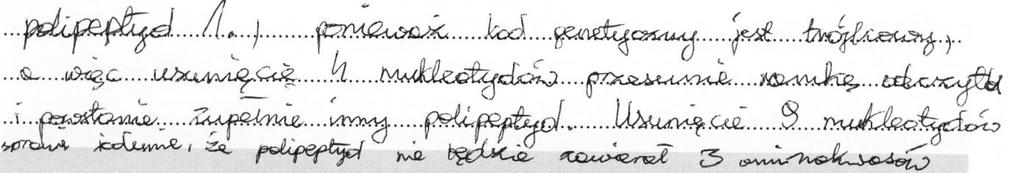 polipeptyd 1., ponieważ kod genetyczny jest trójkowy,
a więc usunięcie 4 nukleotydów przesunie ramkę odczytu
i powstanie zupełnie inny polipeptyd. Usunięcie 9 nukleotydów
sprawi że polipeptyd nie będzie zawierał 3 aminokwasów